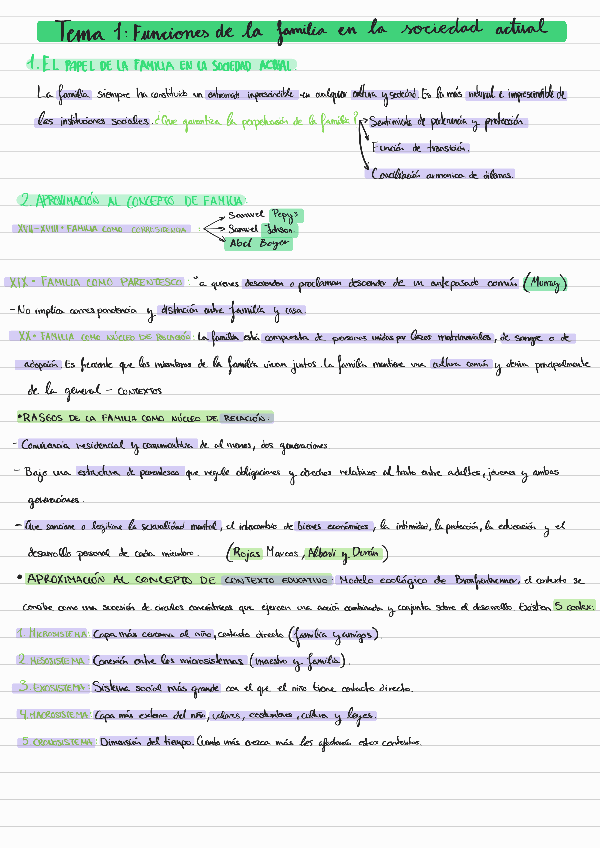 Tema 1: Funciones de la familia en la sociedad actual
1. EL PAPEL DE LA FAMILIA EN LA SOCIEDAD ACTUAL
La familia siempre ha constituido un entramado imprescindible en cualquier cultura y sociedad. Es la más natural e imprescindible de
las instituciones sociales. ¿Que garantiza la perpetuación de la familia? Sentimiento de pertenencia y protección
Función de transición.
Conciliación armonica de órdenes.
2. APROXIMACIÓN AL CONCEPTO DE FAMILIA:
Samuel Pepys
XVII-XVIII • FAMILIA COMO CORRESIDENCIA : Samuel Johson.
Abel Boyer
XIX - FAMILIA COMO PARENTESCO: "a quienes descienden o proclaman descender de un antepasado común (Murray)
- No implica correspondencia y distinción entre familia y casa.
XX - FAMILIA COMO NÚCLEO DE RELACIÓN: La familia está compuesta de personas unidas por lazos matrimoniales, de sangre o de
adopción. Es frecuente que los miembros de la familia vivan juntos. La familia mantiene una cultura común y deriva principalmente
de la general - CONTEXTOS
• RASGOS DE LA FAMILIA COMO NÚCLEO DE RELACIÓN.
- Convivencia residencial y comunicativa de al menos, dos generaciones
- Bajo una estructura de parentesco que regule obligaciones y derechos relativos al trato entre adultos, jovenes y ambas
generaciones.
- Que sancione o legitime la sexualidad marital, el intercambio de bienes económicos, la intimidad, la protección, la educación y el
desarrollo personal de cada miembro. (Rojas Marcos, Alberdi y Durán)
• APROXIMACIÓN AL CONCEPTO DE CONTEXTO EDUCATIVO: Modelo ecológico de Bronfenbrenner, el contexto se
concibe como una sucesión de circulos concéntricos que ejercen una acción combinada y conjunta sobre el desarrollo. Existen 5 contex:
1. MICROSISTEMA: Capa más cercana al niño, contacto directo (familia y amigos)
2. MESOSISTEMA: Conexión entre los microsistemas (maestro y familia).
3. EXOSISTEMA: Sistema social más grande con el que el niño tiene contacto directo.
4. MACROSISTEMA: Capa más externa del niño, valores, costumbres, cultura y leyes.
5. CRONOSISTEMA: Dimensión del tiempo. Cuanto más crezca más les afectarán estos contextos.